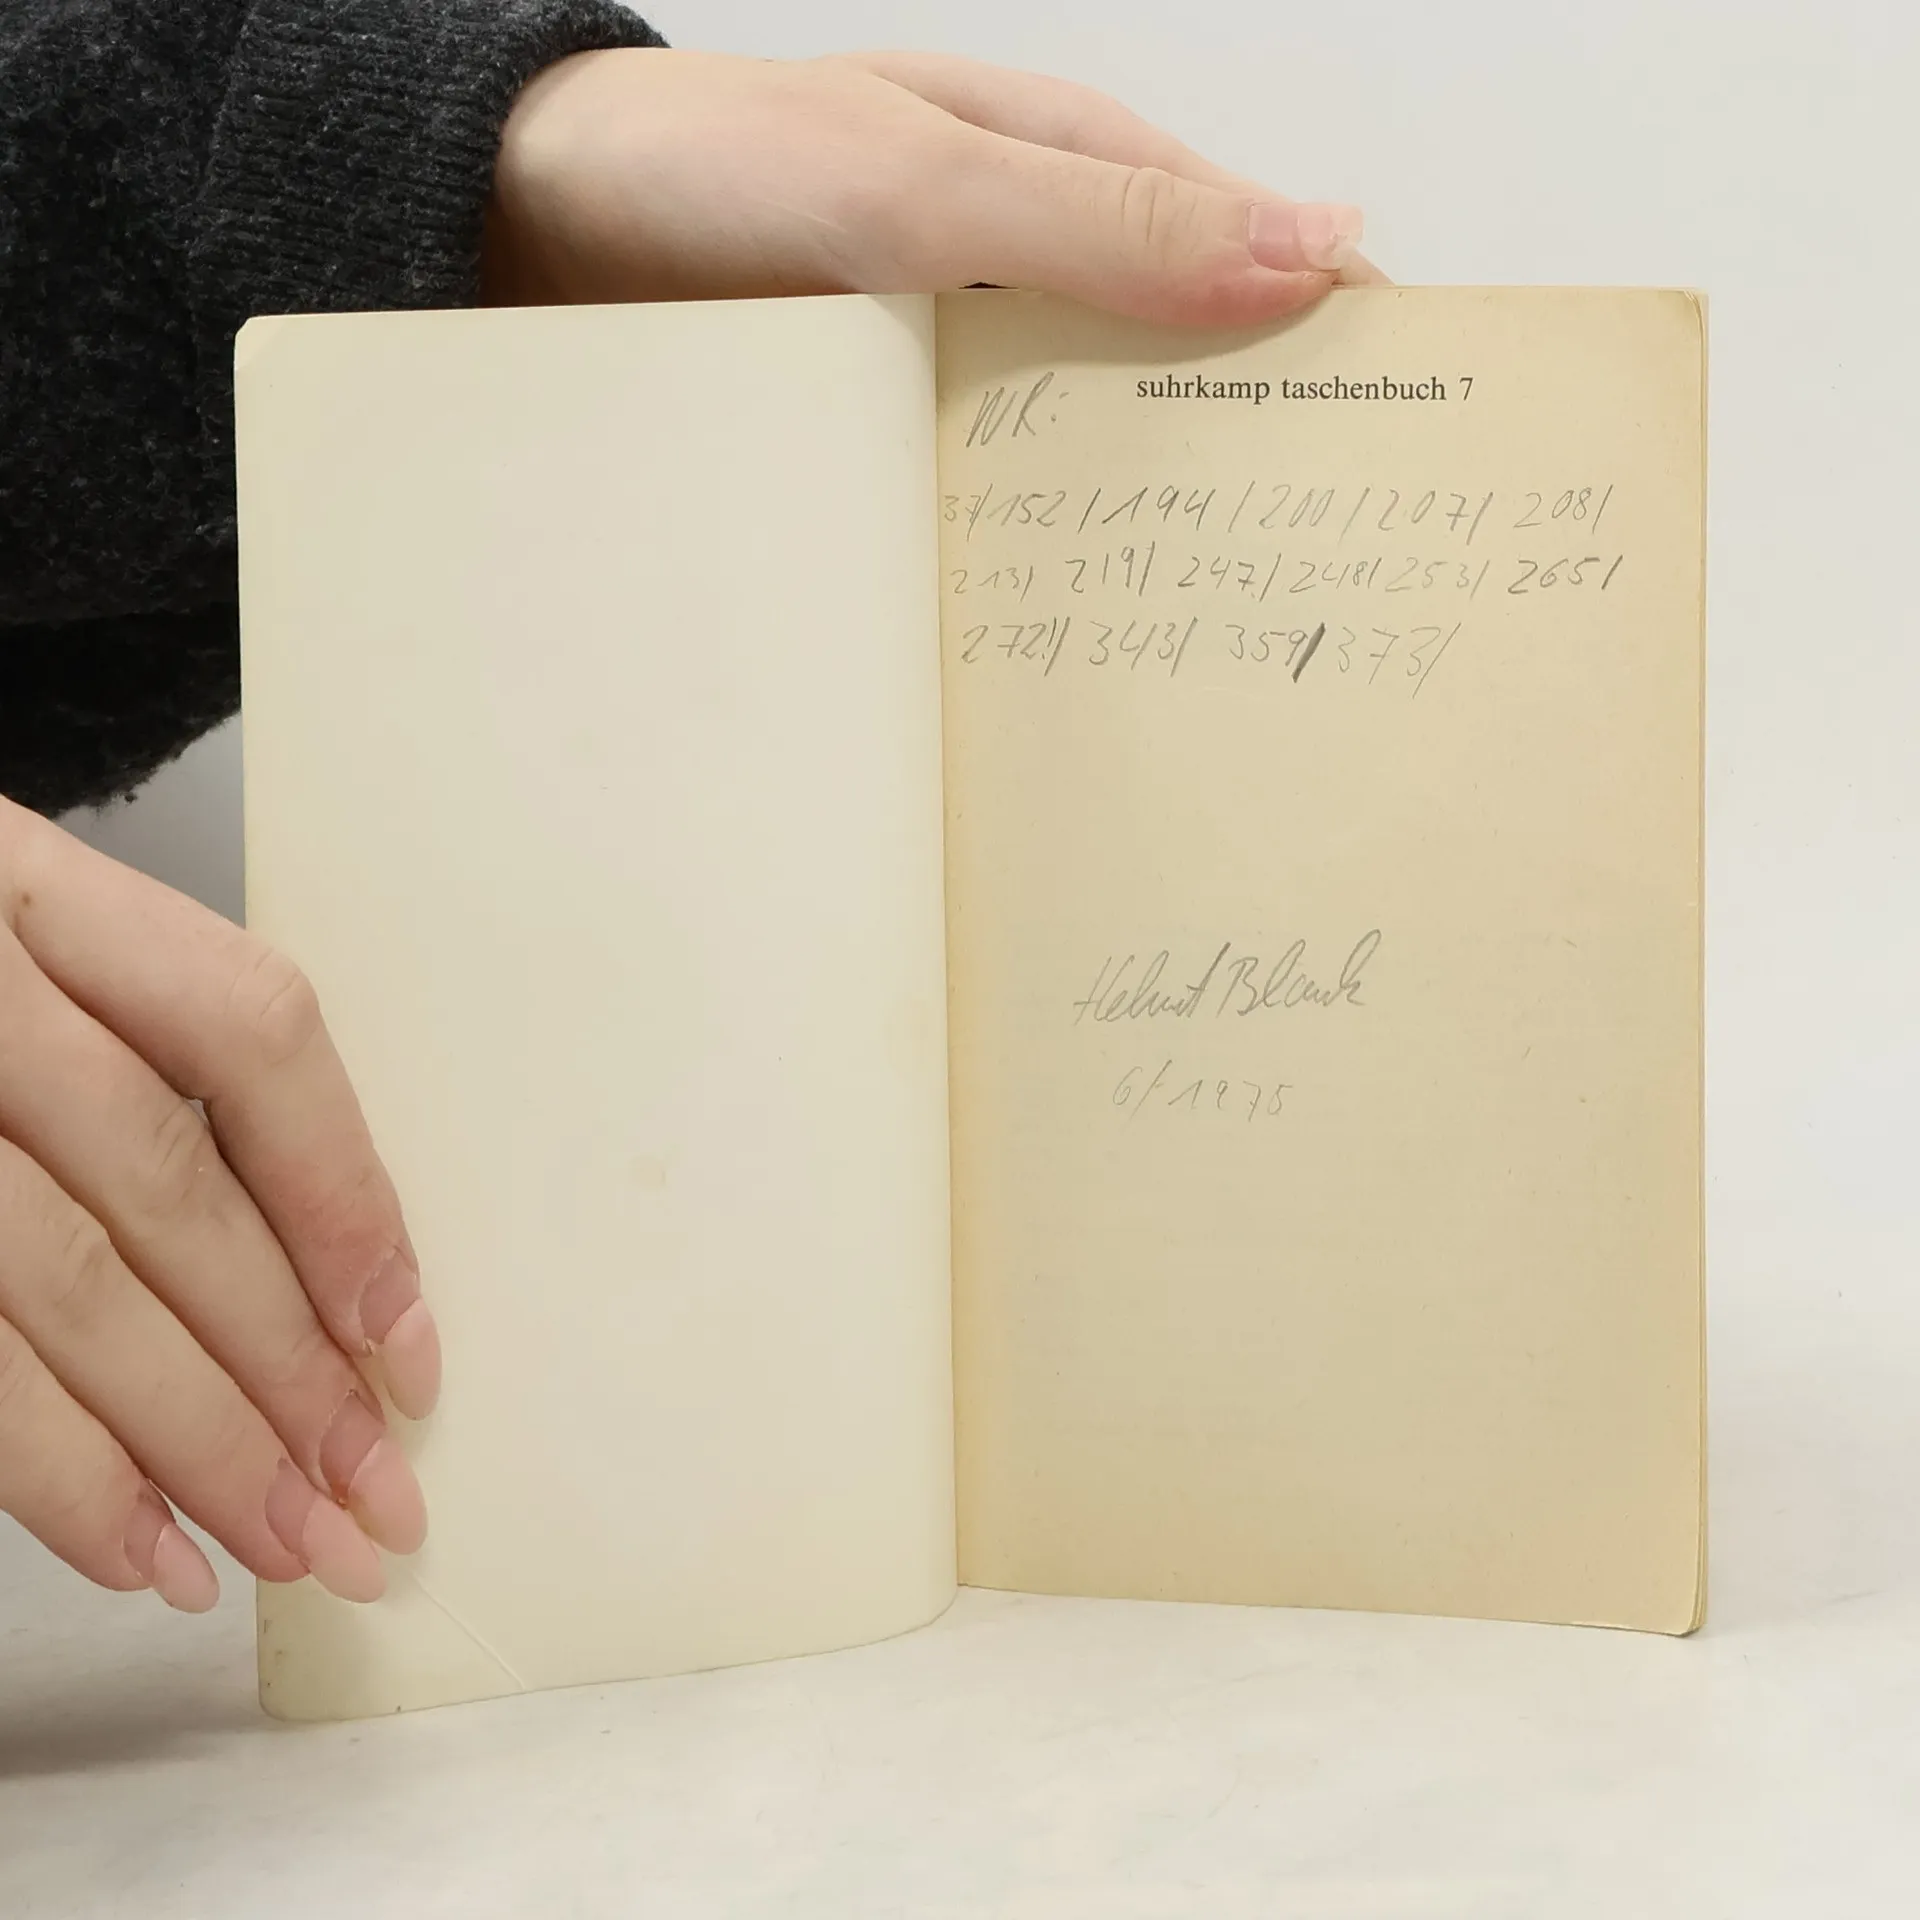 suhrkamp taschenbuch 7
NR:
37/152/194/200/207/208/
213/ 219/ 247/248/253/265/
272!/ 343/ 359/373/
Helmut Blank
6/1975